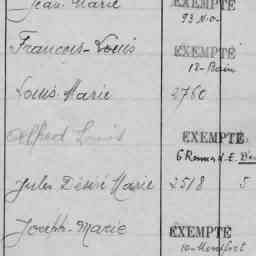 Jean-Marie EXEMPTÉ
93 N.O.
François-Louis EXEMPTÉ
12-Bain
Louis Marie 2760
Alfred Louis EXEMPTÉ
6 Rennes S.E.
Jules Désiré Marie 2518 5
Joseph-Marie EXEMPTÉ
10-Montfort